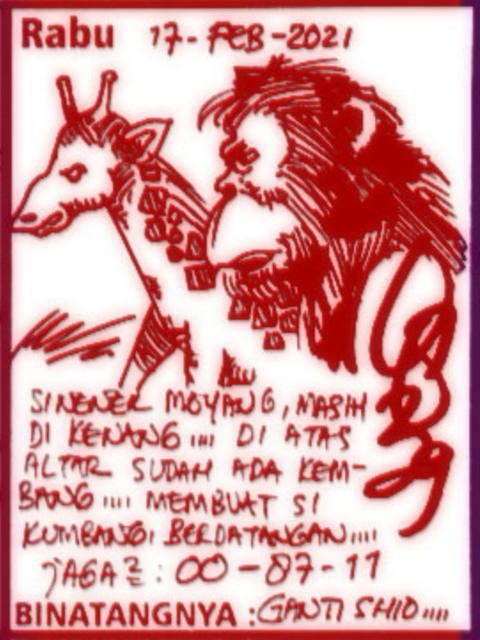 Rabu 17-FEB-2021
SINENEK MOYANG, MASIH
DI KENANG .... DI ATAS
ALTAR SUDAH ADA KEM-
BANG .... MEMBUAT SI
KUMBANG, BERDATANGAN ....
JAGA² : 00-87-11
BINATANGNYA : GANTI SHIO ....